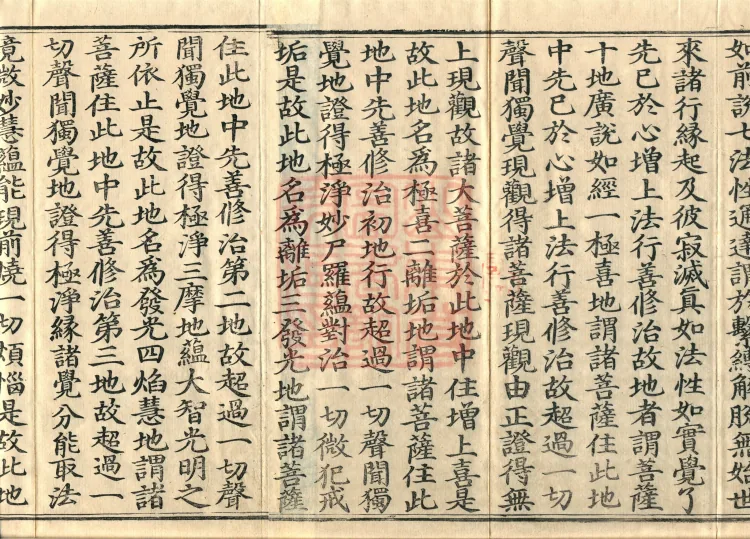 如前說七法性通達謂於繫縛解脫無始世
來諸行緣起及彼寂滅真如法性如實覺了
先已於心增上法行善修治故地者謂菩薩
十地廣說如經一極喜地謂諸菩薩住此地
中先已於心增上法行善修治故超過一切
聲聞獨覺現觀得諸菩薩現觀由正證得無
上現觀故諸大菩薩於此地中住增上喜是
故此地名為極喜二離垢地謂諸菩薩住此
地中先善修治初地行故超過一切聲聞獨
覺地證得極淨妙尸羅蘊對治一切微犯戒
垢是故此地名為離垢三發光地謂諸菩薩
住此地中先善修治第二地故超過一切聲
聞獨覺地證得極淨三摩地蘊大智光明之
所依止是故此地名為發光四焰慧地謂諸
菩薩住此地中先善修治第三地故超過一
切聲聞獨覺地證得極淨緣諸覺分能取法
境微妙慧蘊能現前燒一切煩惱是故此地